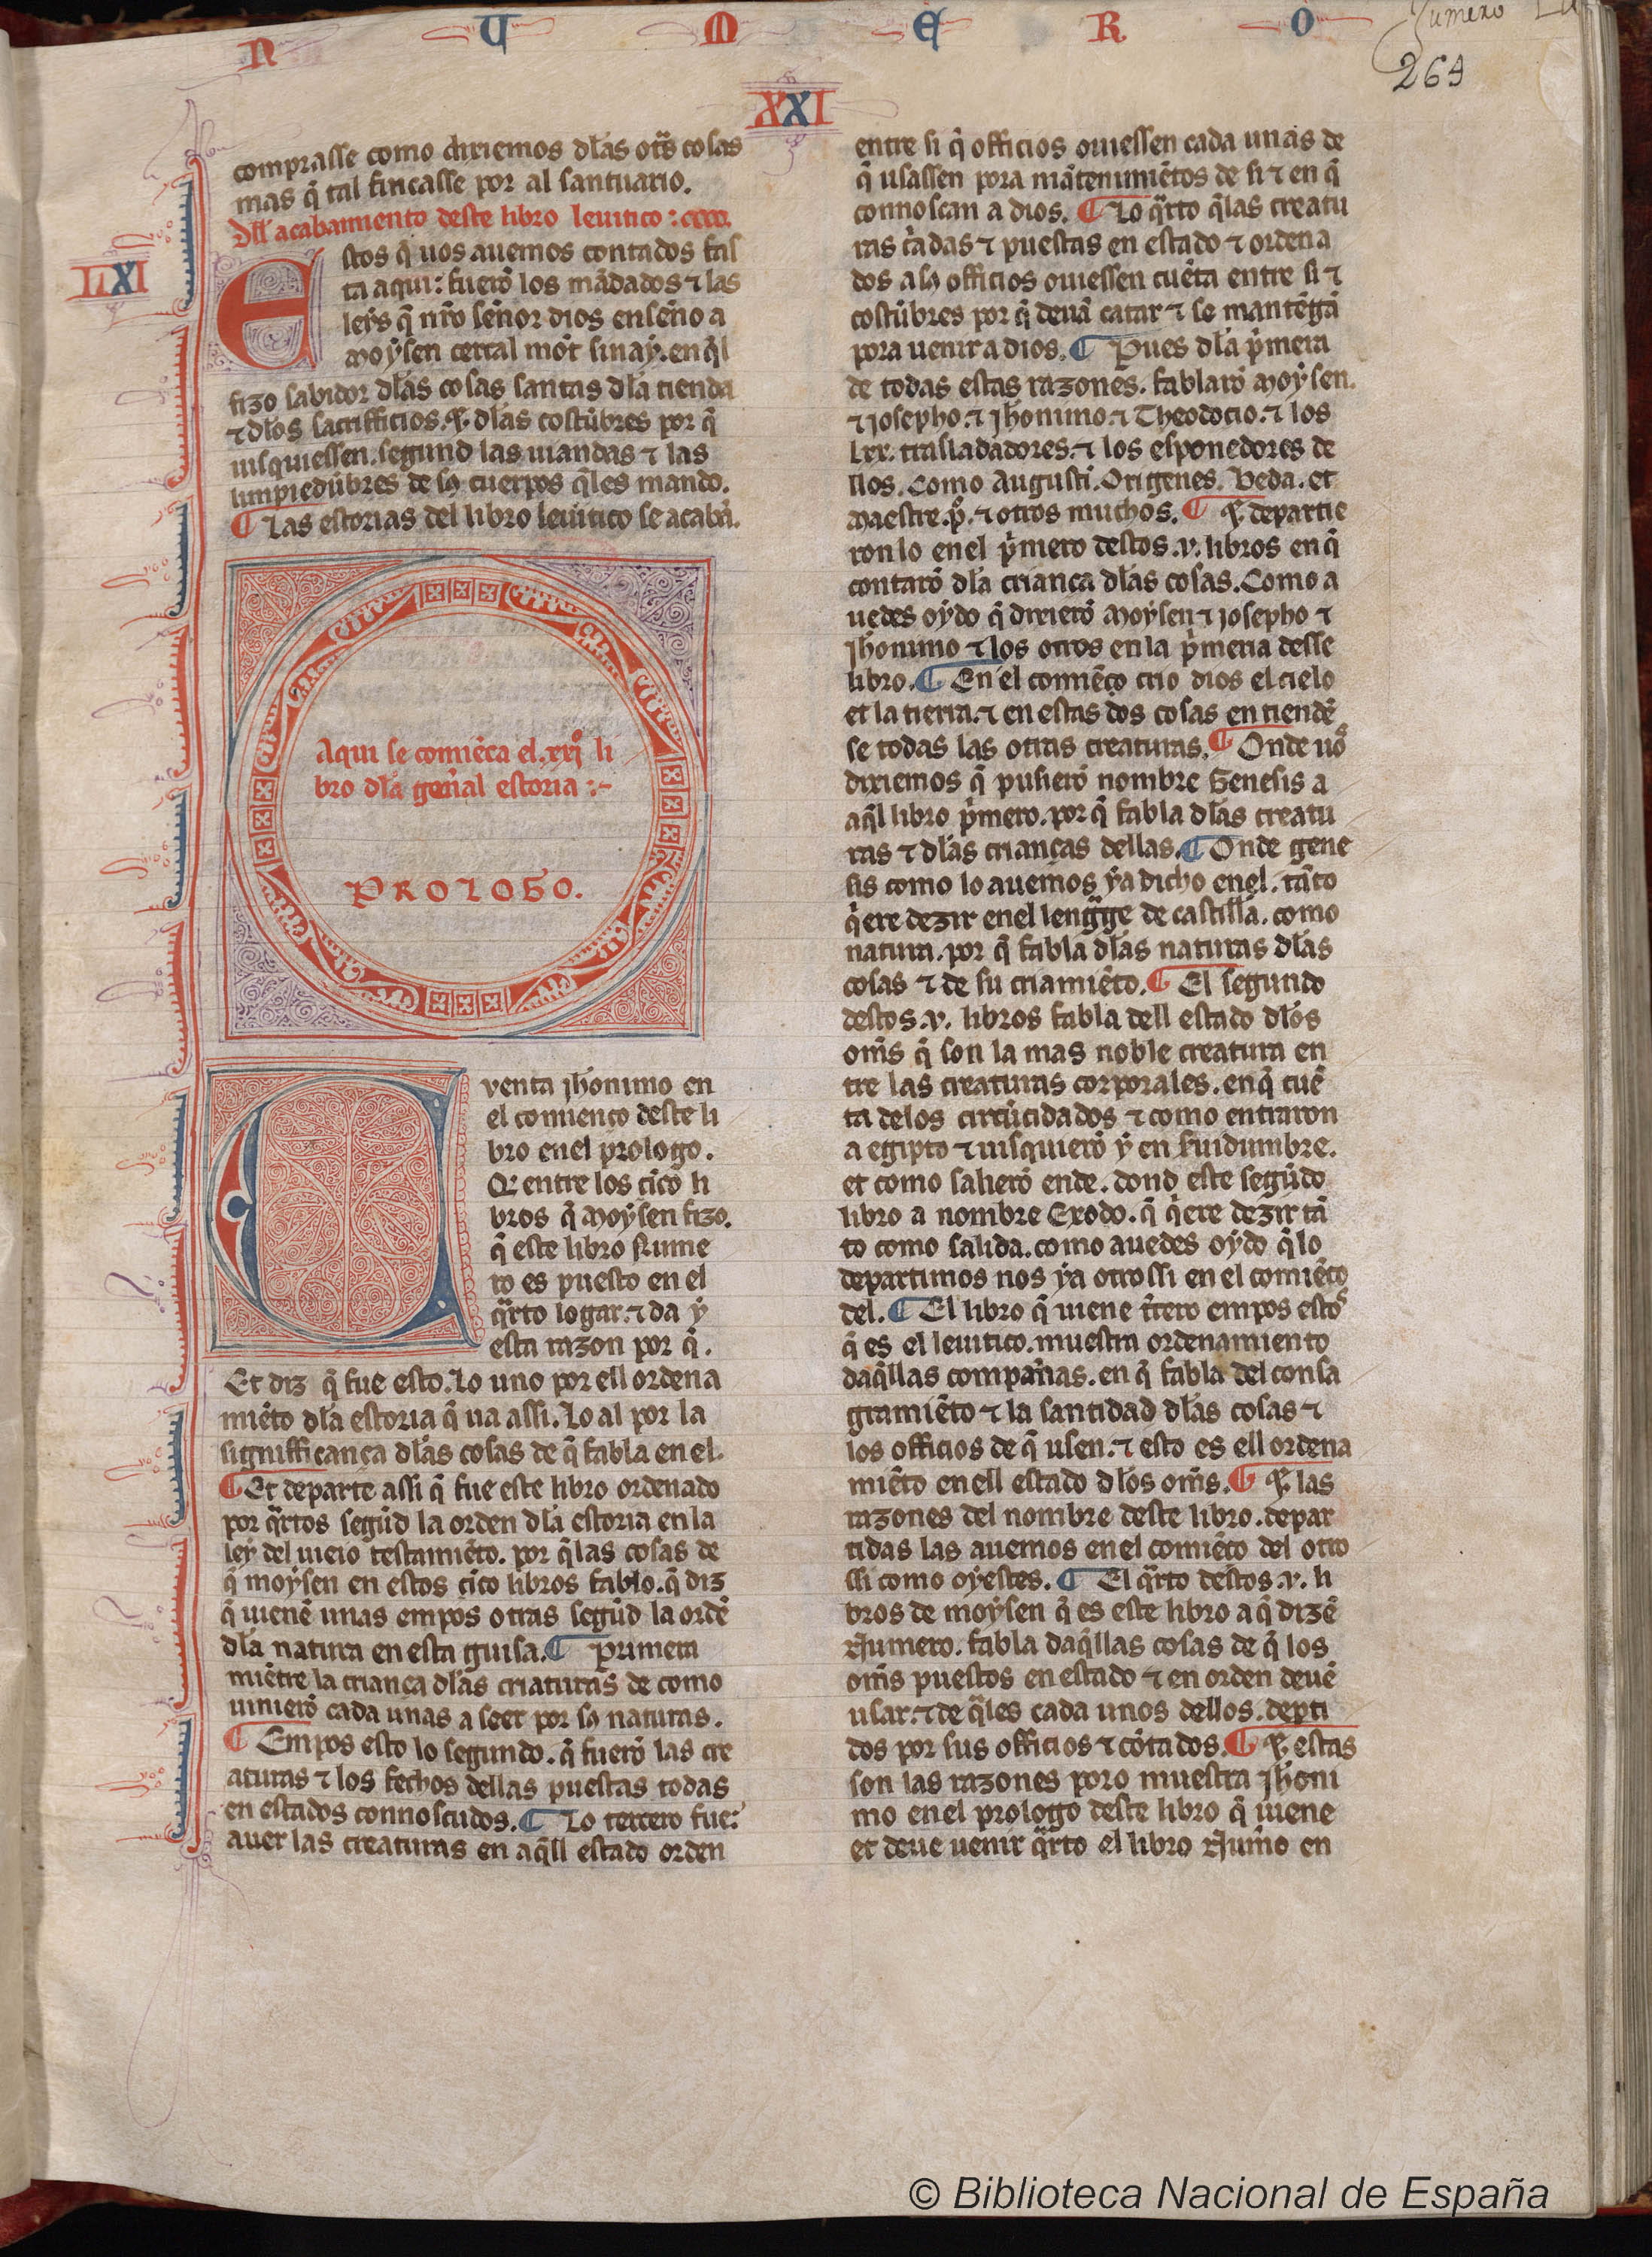 N U M E R O
Numero
269
XXI
comprasse como dixiemos dlas otrs cosas
mas q̃ tal fincasse por al santuario.
Dell acabamiento deste libro leuitico :
LIXI
Estos q̃ uos auemos contados fas
ta aqui: fuerõ los mãdados ⁊ las
leẏs q̃ nr̃o señor dios enseño a
Moẏsen cercal mõt sinaẏ. en q̃l
fizo sabidor dlas cosas santas dla tienda
⁊ dlos sacrifficios. ⁊ dlas costũbres por q̃
uisquiessen. segund las uiandas ⁊ las
limpiedũbres de sꝯ cuerpos q̃les mando.
¶ Las estorias del libro leuitico se acabã.
Aqui se comiẽça el .xxj̊. li
bro dla general estoria :~
PROLOGO.
Cventa jhonimo en
el comienço deste li
bro en el prologo.
Q̃ entre los cĩco li
bros q̃ Moẏsen fizo.
q̃ este libro Nume
ro es puesto en el
qͣrto logar. ⁊ da ẏ
esta razon por q̃.
Et diz q̃ fue esto. Lo uno por ell ordena
miẽto dla estoria q̃ ua assi. Lo al por la
signifficança dlas cosas de q̃ fabla en el.
¶ Et departe assi q̃ fue este libro ordenado
por qͣrtos segũd la orden dla estoria en la
leẏ del uieio testamiẽto. por q̃ las cosas de
q̃ moẏsen en estos cĩco libros fablo. q̃ diz
q̃ uienẽ unas empos otras segũd la ordẽ
dla natura en esta guisa. ¶ Primera
miẽtre la criança dlas criaturas de como
uinierõ cada unas a seer por sꝯ naturas.
¶ Empos esto lo segundo. q̃ fuerõ las cre
aturas ⁊ los fechos dellas puestas todas
en estados connosçudos. ¶ Lo tercero fue:
auer las creaturas en aq̃ll estado orden
entre si q̃ officios ouiessen cada unas de
q̃ usassen pora mãtenimiẽtos de si ⁊ en q̃
connoscan a dios. ¶ Lo qͣrto q̃ las creatu
ras cͥadas ⁊ puestas en estado ⁊ ordena
dos a sꝯ officios ouiessen cuẽta entre si ⁊
costũbres por q̃ deuã catar ⁊ se mantẽgã
pora uenir a dios. ¶ Pues dla pͥmera
de todas estas razones. fablarõ Moẏsen.
⁊ josepho. ⁊ jhonimo. ⁊ Theodocio. ⁊ los
Lxx. trasladadores. ⁊ los esponedores de
llos. Como Augustĩ. Origenes. Beda. et
Maestre .p̊. ⁊ otros muchos. ¶ ⁊ departie
ron lo en el pͥmero destos .v. libros en q̃
contarõ dla criança dlas cosas. Como a
uedes oẏdo q̃ dixierõ Moẏsen ⁊ josepho ⁊
jhonimo ⁊ los otros en la pͥmeria desse
libro. ¶ En el comiẽço crio dios el cielo
et la tierra. ⁊ en estas dos cosas entiendẽ
se todas las otras creaturas. ¶ Onde uos
dixiemos q̃ pusierõ nombre Genesis a
aq̃l libro pͥmero. por q̃ fabla dlas creatu
ras ⁊ dlas crianças dellas. ¶ Onde gene
sis como lo auemos ẏa dicho en el. tãto
qͥere dezir en el lengͣge de castiella. como
natura. por q̃ fabla dlas naturas dlas
cosas ⁊ de su criamiẽto. ¶ El segundo
destos .v. libros fabla dell estado dlos
om̃s q̃ son la mas noble creatura en
tre las creaturas corporales. en q̃ cuẽ
ta de los circũcidados ⁊ como entraron
a egipto ⁊ uisquierõ ẏ en s̃uidumbre.
et como salierõ ende. dond este segũdo
libro a nombre Exodo. q̃ qͥere dezir tã
to como salida. como auedes oẏdo q̃ lo
departimos nos ẏa otrossi en el comiẽço
del. ¶ El libro q̃ uiene tͥcero empos estos
q̃ es el leuitico. muestra ordenamiento
daq̃llas compañas. en q̃ fabla del consa
gramiẽto ⁊ la santidad dlas cosas ⁊
los officios de q̃ usen. ⁊ esto es ell ordena
miẽto en ell estado dlos om̃s. ¶ ⁊ las
razones del nombre deste libro. depar
tidas las auemos en el comiẽço del otro
ssi como oẏestes. ¶ El qͣrto destos .v. li
bros de moẏsen q̃ es este libro a q̃ dizẽ
Numero. fabla daq̃llas cosas de q̃ los
om̃s puestos en estado ⁊ en orden deuẽ
usar. ⁊ de q̃les cada unos dellos. dep̃ti
dos por sus officios ⁊ cõtados. ¶ ⁊ estas
son las razones poro muestra jhoni
mo en el prologo deste libro q̃ uiene
et deue uenir qͣrto el libro Num̃o en
© Biblioteca Nacional de España